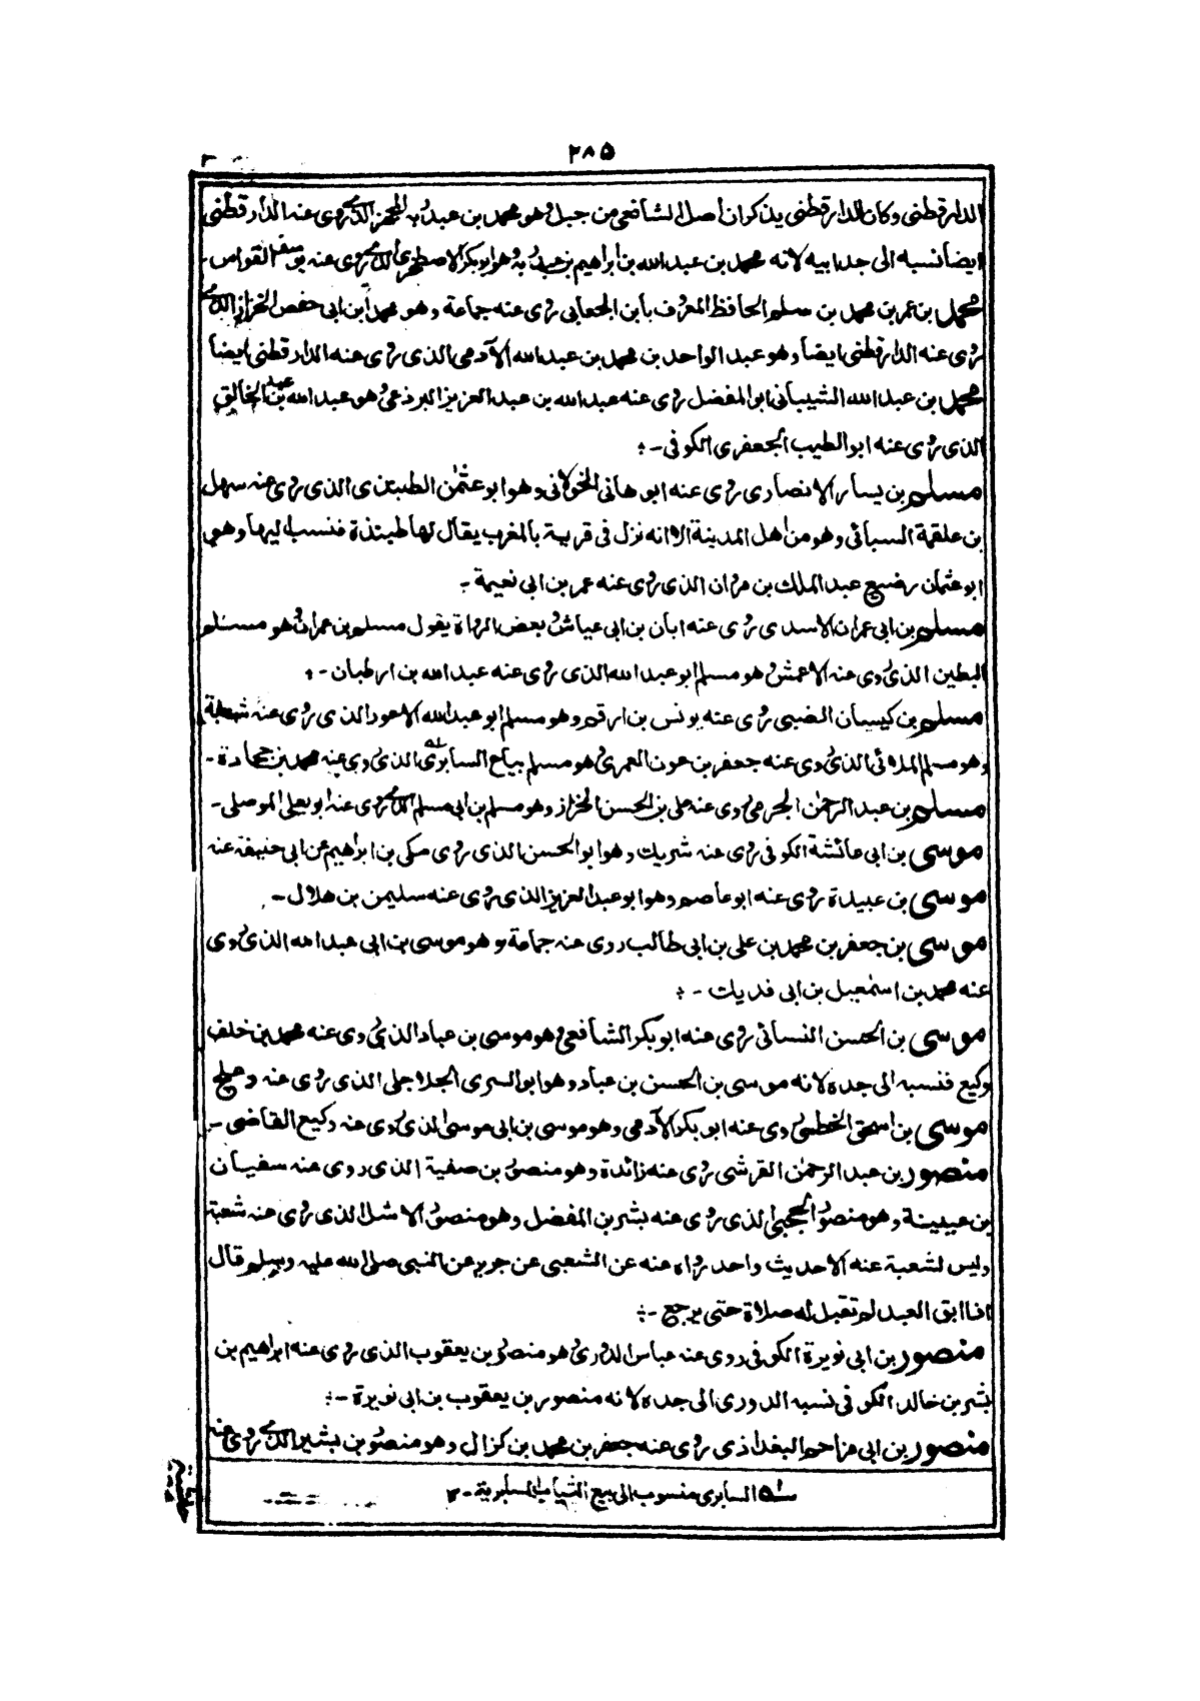 ٢٨٥
الدارقطنى وكان الدارقطنى يذكران اصل الشافعى من جبل وهو محمد بن عبدويه الذى روى عنه الدارقطنى
ايضا نسبه الى جد ابيه لانه محمد بن عبد الله بن ابراهيم بن عبدويه وهو ابو بكر الذى روى عنه يوسف القواس -
محمد بن عمر بن محمد بن سلم الحافظ المعروف بابن الجعابى روى عنه جماعة وهو محمد ابن ابى حفص الذى
روى عنه الدارقطنى ايضا وهو عبد الواحد بن محمد بن عبد الله الآدمى الذى روى عنه الدارقطنى ايضا
محمد بن عبد الله الشيبانى ابو المفضل روى عنه عبد الله بن عبد العزيز البرذعى وهو عبد الله بن عبد الخالق
الذى روى عنه ابو الطيب الجعفرى الكوفى - :
مسلم بن يسار الانصارى روى عنه ابو هانى الخولانى وهو ابو عثمٰن الطنبذى الذى روى عنه سهل
بن علقمة السبائى وهو من اهل المدينة الا انه نزل فى قرية بالمغرب يقال لها طنبذة فنسب ليها وهو
ابو عثمان رضيع عبد الملك بن مروان الذى روى عنه عمر بن ابى نعيمة -
مسلم بن ابى عمران الاسدى روى عنه ابان بن ابى عياش وبعض الرواة يقول مسلم بن عمران وهو مسلم
البطين الذى روى عنه الاعمش وهو مسلم ابو عبد الله الذى روى عنه عبد الله بن ارطبان - :
مسلم بن كيسان الضبى روى عنه يونس بن ارقم وهو مسلم ابو عبد الله الاعور الذى روى عنه شعبة
وهو مسلم الملائى الذى روى عنه جعفر بن عون العمرى وهو مسلم بياع السابرى الذى روى عنه محمد بن جحادة -
مسلم بن عبد الرحمٰن الجرمى روى عنه على بن الحسن الخزاز وهو مسلم بن ابى مسلم الذى روى عنه ابو يعلى الموصلى -
موسى بن ابى عائشة الكوفى روى عنه شريك وهو ابو الحسن الذى روى مكى بن ابراهيم عن ابى حنيفة عنه
موسى بن عبيدة روى عنه ابو عاصم وهو ابو عبد العزيز الذى روى عنه سليمن بن هلال -
موسى بن جعفر بن محمد بن على بن ابى طالب روى عنه جماعة وهو موسى بن ابى عبد الله الذى روى
عنه محمد بن اسمٰعيل بن ابى فديك - :
موسى بن الحسن النسائى روى عنه ابو بكر الشافعى وهو موسى بن عباد الذى روى عنه محمد بن خلف
وكيع فنسبه الى جده لانه موسى بن الحسن بن عباد وهو ابو السرى الجلاجلى الذى روى عنه دعلج
موسى بن اسحٰق الخطمى روى عنه ابو بكر الآدمى وهو موسى بن ابى موسى الذى روى عنه وكيع القاضى -
منصور بن عبد الرحمٰن القرشى روى عنه زائدة وهو منصور بن صفية الذى روى عنه سفيان
بن عيينة وهو منصور الحجبى الذى روى عنه بشر بن المفضل وهو منصور الاشل الذى روى عنه شعبة
وليس لشعبة عنه الا حديث واحد رواه عنه عن الشعبى عن جرير عن النبى صلى الله عليه وسلم قال
اذا ابق العبد لم تقبل له صلاة حتى يرجع - :
منصور بن ابى نويرة الكوفى روى عنه عباس الدورى وهو منصور بن يعقوب الذى روى عنه ابراهيم بن
بشر بن خالد الكوفى نسبه الدورى الى جده لانه منصور بن يعقوب بن ابى نويرة - :
منصور بن ابى مزاحم البغداذى روى عنه جعفر بن محمد بن كزال وهو منصور بن بشير الذى روى عنه
له السابرى منسوب الى بيع الثياب السابرية - ٢